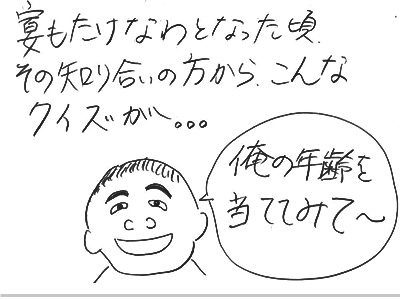 宴もたけなわとなった頃、
その知り合いの方から、こんな
クイズが。。。
俺の年齢を
当ててみて〜